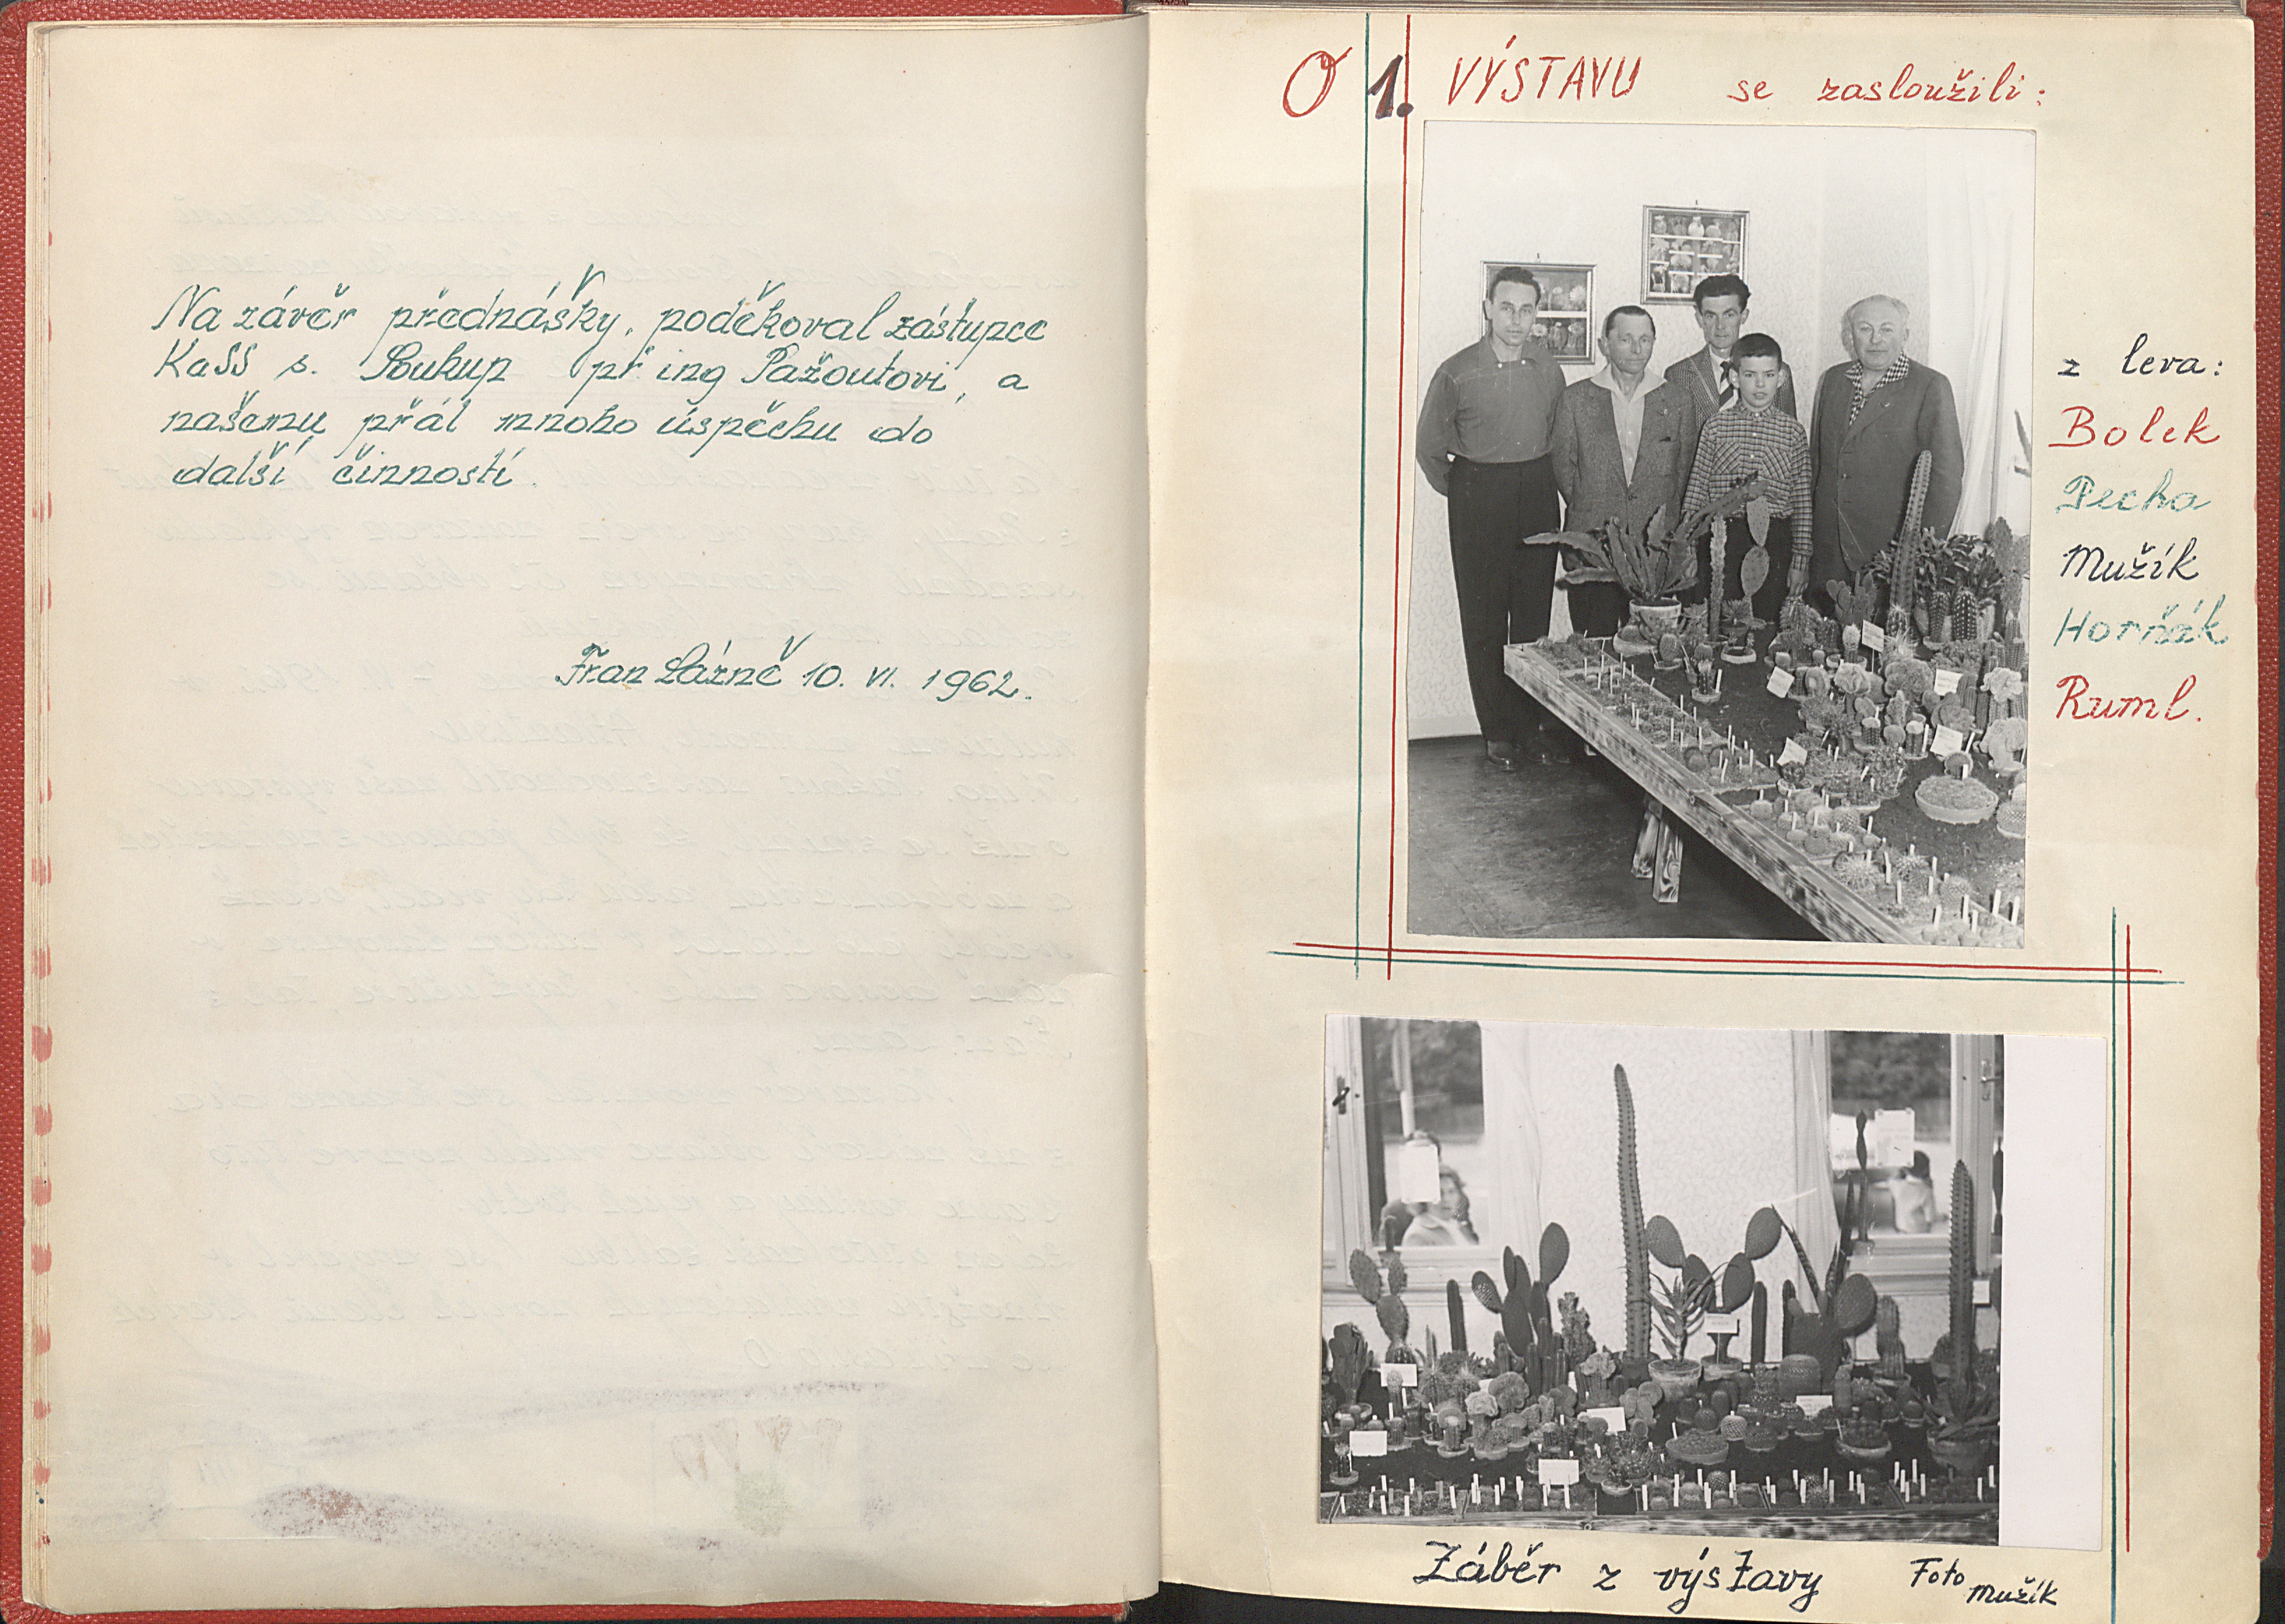 Na závěr přednášky, poděkoval zástupce
KaSS s. Soukup př ing Pažoutovi, a
našemu přál mnoho úspěchu do
další činnosti.
Fran Lázně 10. VI. 1962.
O 1. VÝSTAVU se zasloužili:
z leva:
Bolek
Pecha
Mužík
Horňák
Ruml.
Záběr z výstavy Foto Mužík